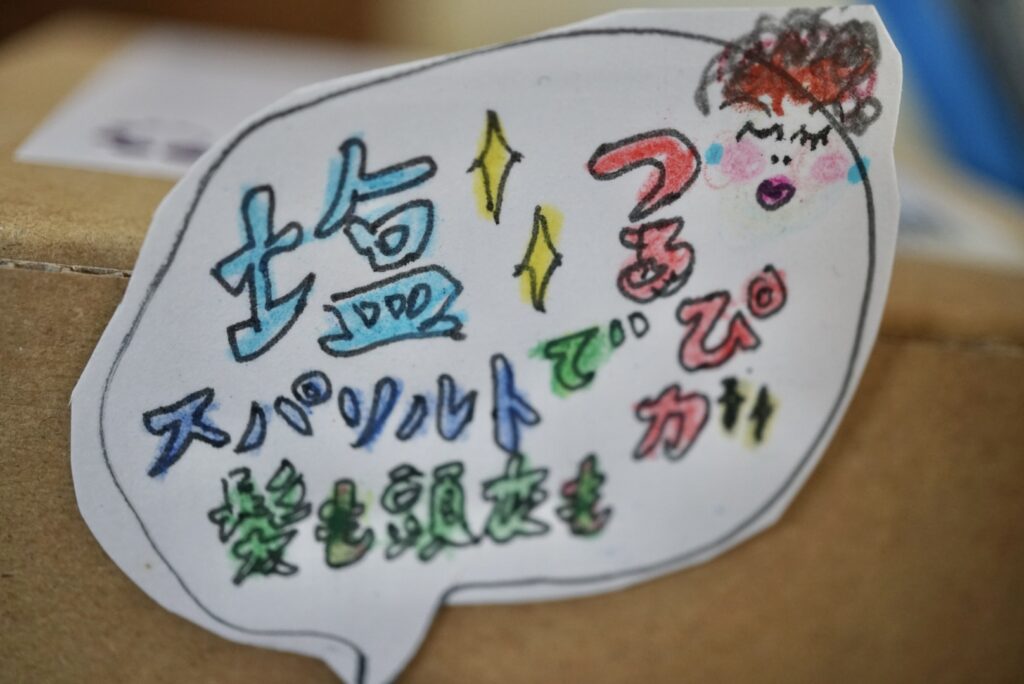 塩
スパソルトで
髪も頭皮も
つるぴカ